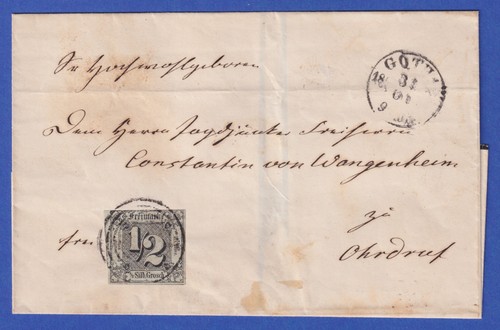 Sr Hochwohlgeboren
GOTHA
31
Dem Herrn Jagdjunker Freiherrn
Constantin von Wangenheim
zu
Ohrdruf
frei
Freimarke
1/2
1/2 Silb. Grosch.